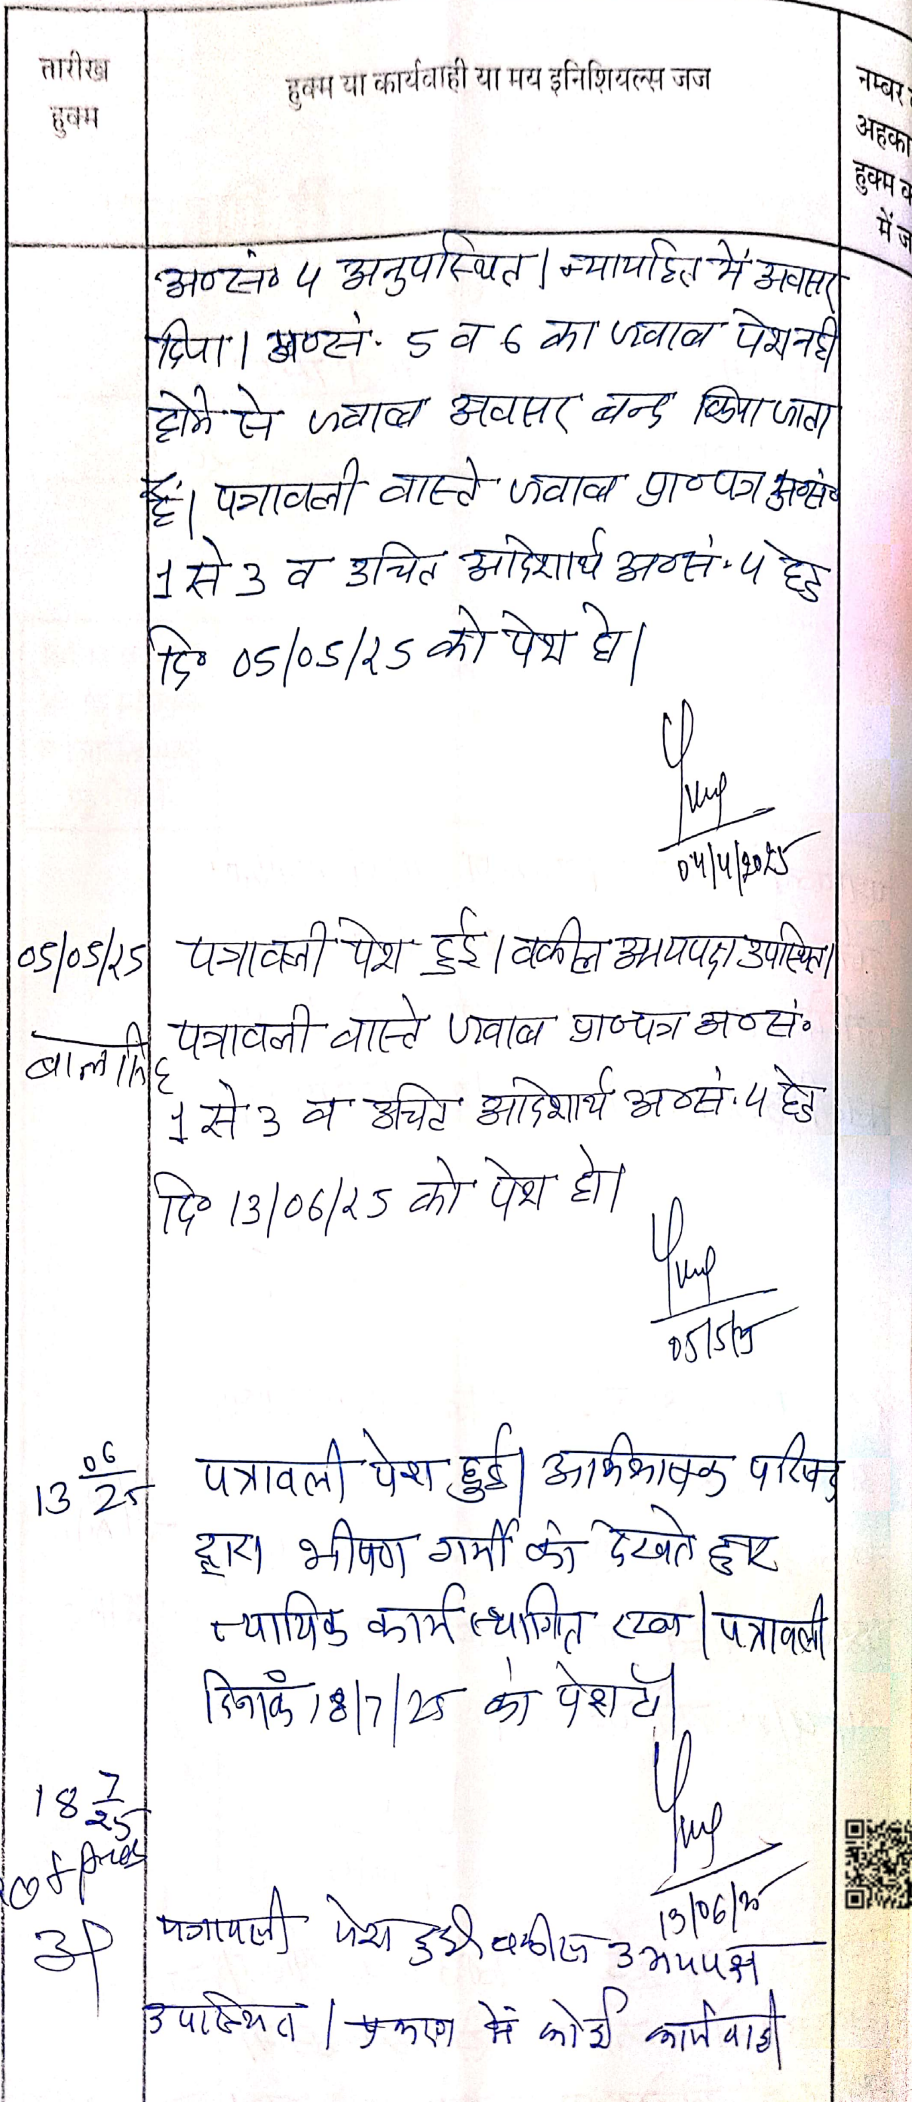 तारीख
हुक्म
हुक्म या कार्यवाही या मय इनिशियल्स जज
नम्बर
अहका
हुक्म
में ज
अ०सं० 4 अनुपस्थित। न्यायहित में अवसर
दिया। अ०सं. 5 व 6 का जवाब पेश नही
होने से जवाब अवसर बन्द किया जाता
है। पत्रावली वास्ते जवाब प्रा०पत्र अ०सं०
1 से 3 व उचित आदेशार्थ अ०सं. 4 हेतु
दि० 05/05/25 को पेश हो।
04/4/2025
05/05/25 पत्रावली पेश हुई। वकील उभयपक्ष उपस्थित।
पत्रावली वास्ते जवाब प्रा०पत्र अ०सं०
1 से 3 व उचित आदेशार्थ अ०सं. 4 हेतु
दि० 13/06/25 को पेश हो।
05/5/25
13 06/25 पत्रावली पेश हुई। अभिभाषक परिषद
द्वारा भीषण गर्मी को देखते हुए
न्यायिक कार्य स्थगित रखा। पत्रावली
दिनांक 18/7/25 को पेश हो।
13/06/25
18 7/25
पत्रावली पेश हुई वकील उभयपक्ष
उपस्थित। प्रकरण में कोई कार्यवाही